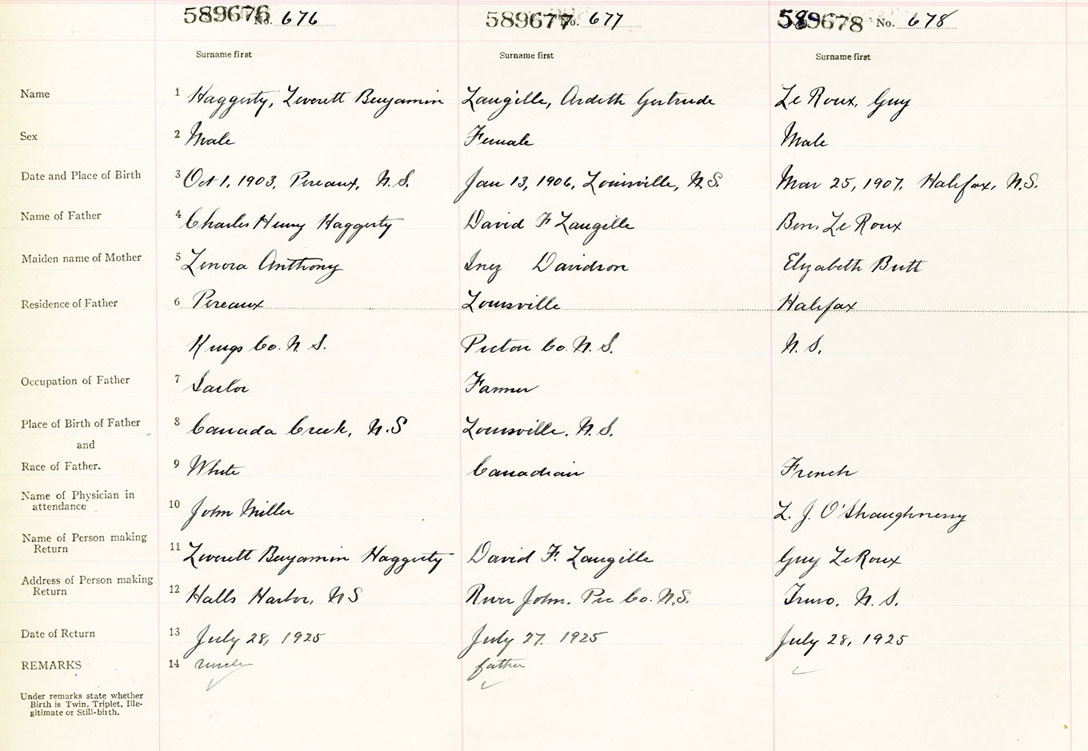 589676 No. 676 589677 No. 677 589678 No. 678
Surname first Surname first Surname first
Name 1 Haggerty, Leverett Benjamin Langille, Ardeth Gertrude Le Roux, Guy
Sex 2 Male Female Male
Date and Place of Birth 3 Oct 1, 1903, Pereaux, N.S. Jan 13, 1906, Louisville, N.S. Mar 25, 1907, Halifax, N.S.
Name of Father 4 Charles Henry Haggerty David F Langille Benj. Le Roux
Maiden name of Mother 5 Lenora Anthony Inez Davidson Elizabeth Butt
Residence of Father 6 Pereaux Louisville Halifax
Kings Co. N.S. Pictou Co. N.S. N.S.
Occupation of Father 7 Sailor Farmer
Place of Birth of Father 8 Canada Creek, N.S Louisville, N.S.
and
Race of Father. 9 White Canadian French
Name of Physician in
attendance 10 John Miller L. J. O'Shaughnessy
Name of Person making
Return 11 Leverett Benjamin Haggerty David F. Langille Guy LeRoux
Address of Person making
Return 12 Halls Harbor, NS River John, Pic Co. N.S. Truro, N.S.
Date of Return 13 July 28, 1925 July 27. 1925 July 28, 1925
REMARKS 14 uncle father
Under remarks state whether
Birth is Twin, Triplet, Ille-
gitimate or Still-birth.